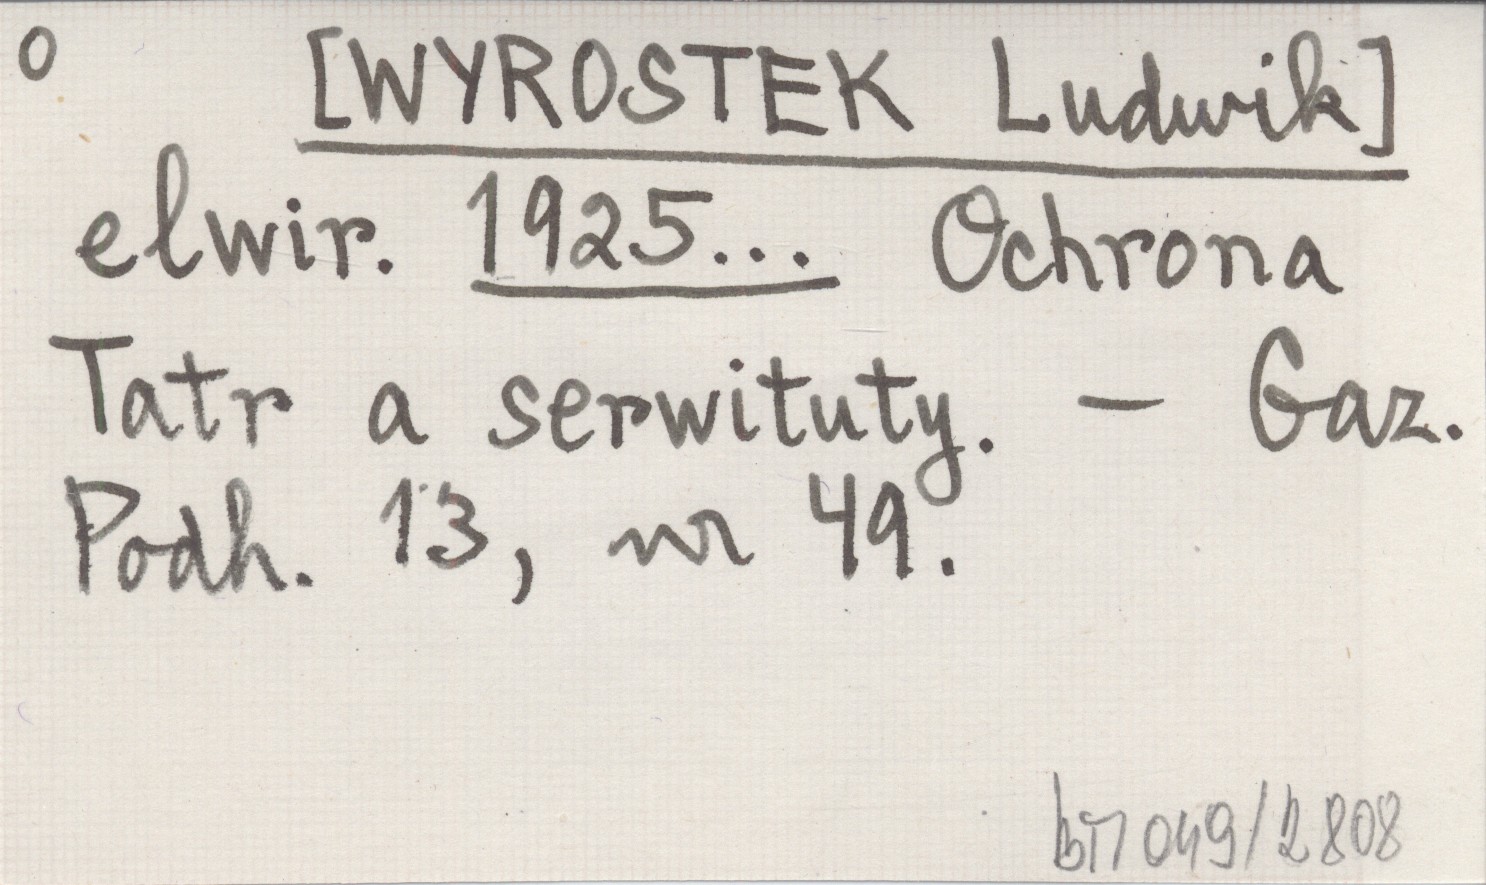 o [WYROSTEK Ludwik]
elwir. 1925... Ochrona
Tatr a serwituty. – Gaz.
Podh. 13, nr 49.
049/2808